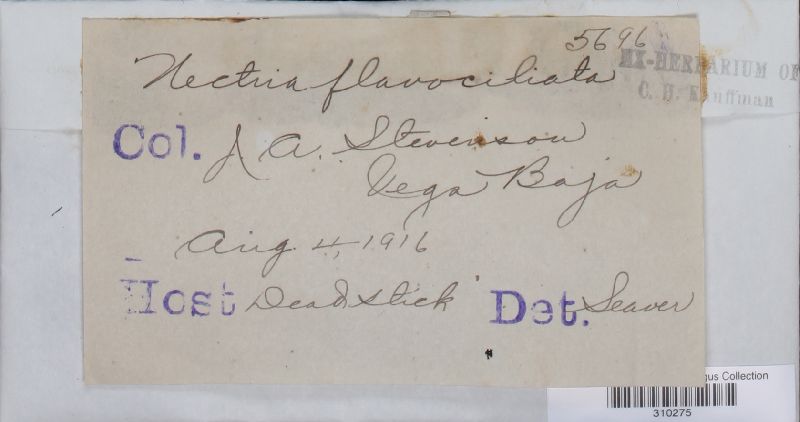 5696
Nectria flavociliata
EX-HERBARIUM OF
C. H. Kauffman
Col. J. A. Stevenson
Vega Baja
Aug. 4, 1916
Host Dead stick Det. Seaver
gus Collection
310275